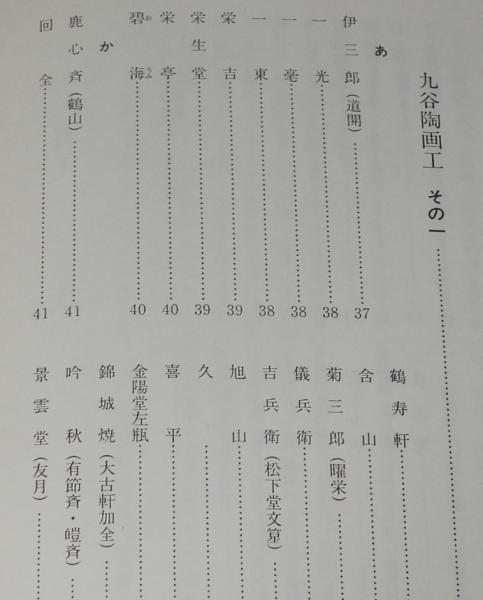 九谷陶画工 その一
あ
伊三郎(道開)……37
一光……38
一毫……38
一東……38
栄吉……39
栄生堂……39
栄亭……40
碧海 おうみ……40
か
鹿心斉(鶴山)……41
回全……41
鶴寿軒……
含山……
菊三郎(曜栄)……
儀兵衛……
吉兵衛(松下堂文)……
旭山……
久……
喜平……
金陽堂左瓶……
錦城焼(大古軒加全)……
吟秋(有節斉・皚斉)……
景雲堂(友月)……